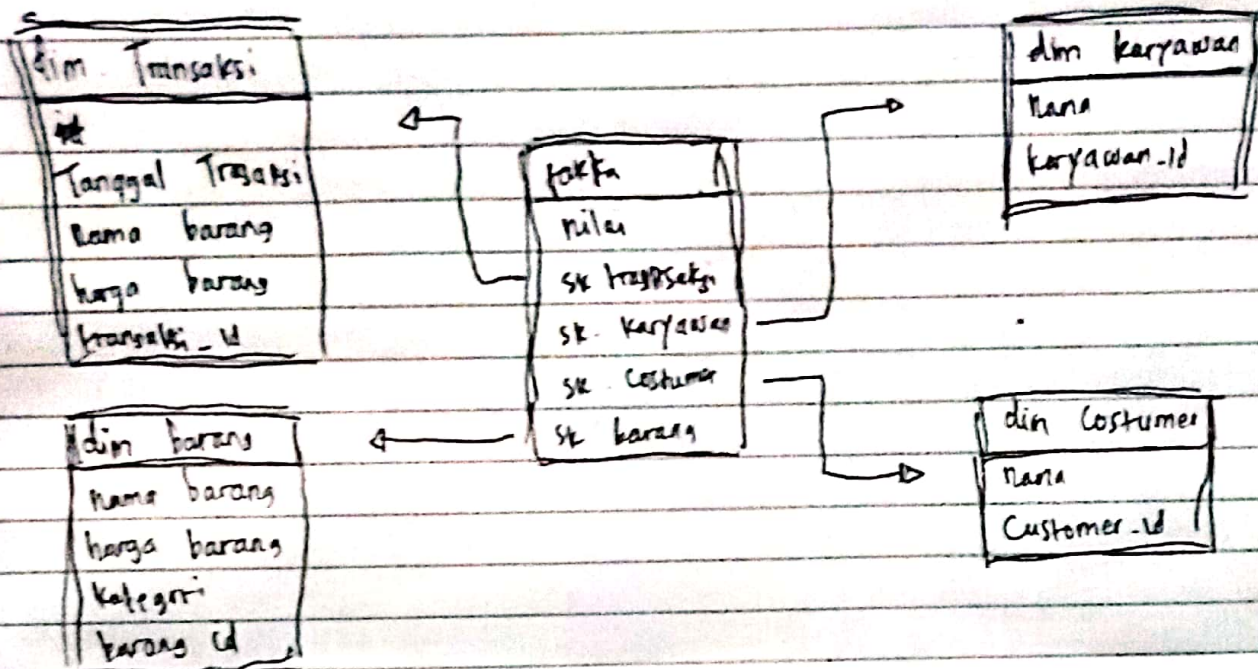 dim Transaksi
Tanggal Trsaksi
Nama barang
harga barang
transaksi_id
dim barang
nama barang
harga barang
kategori
barang id
fakta
nilai
sk
sk karyawan
sk costumer
sk barang
dim karyawan
nama
karyawan_id
dim Costumer
nama
Customer_id